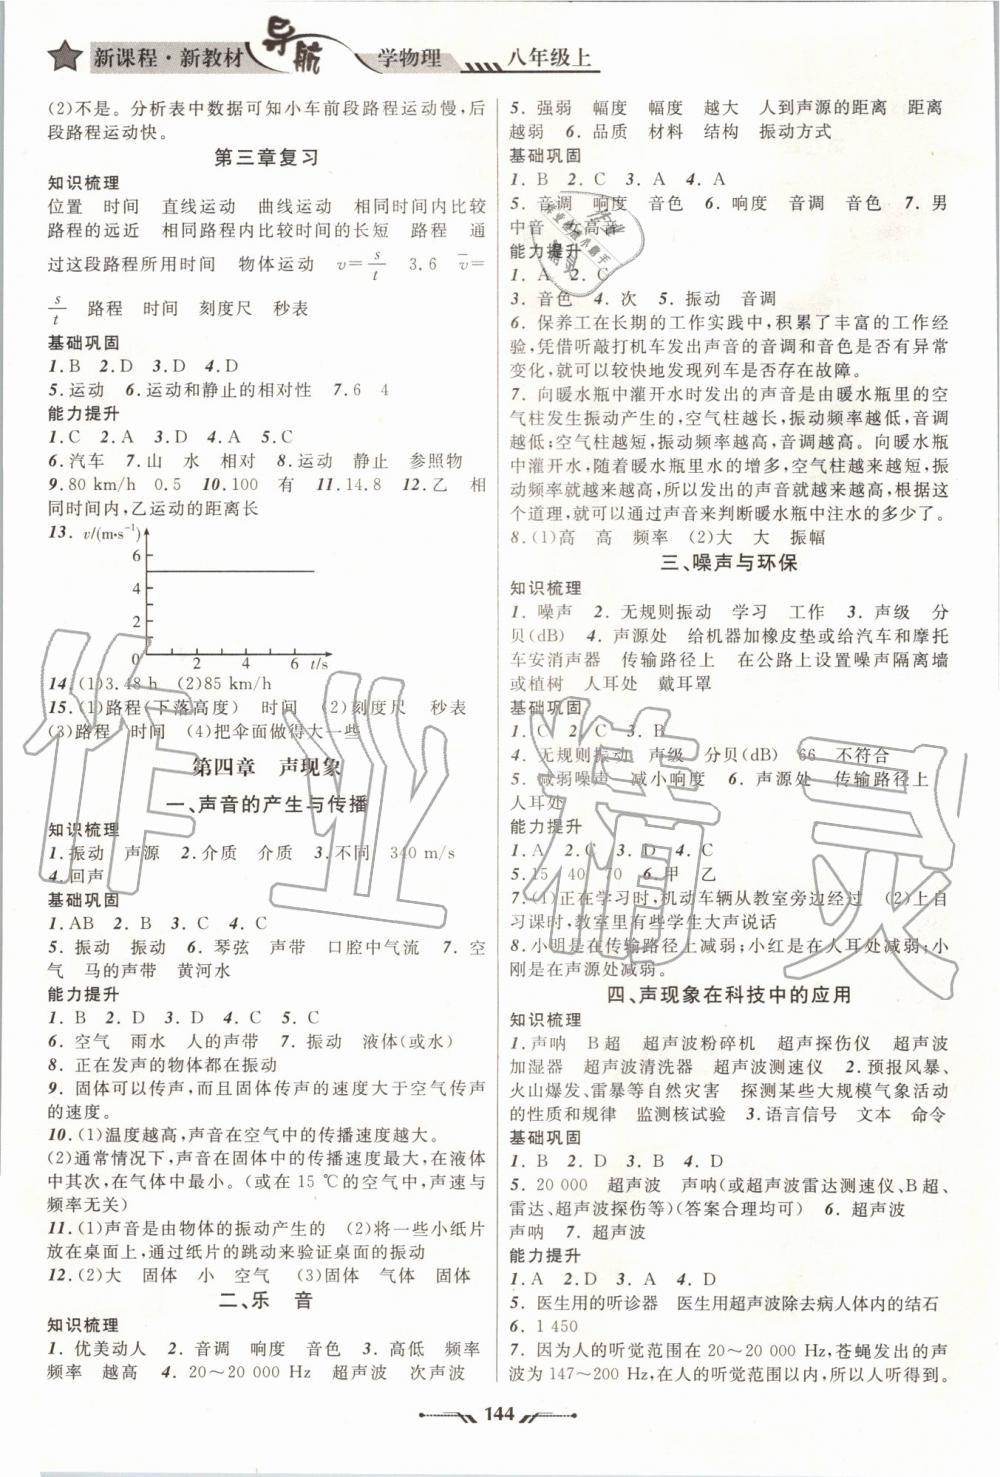 新课程·新教材 导航 学物理 八年级上
(2)不是。分析表中数据可知小车前段路程运动慢,后
段路程运动快。
第三章复习
知识梳理
位置 时间 直线运动 曲线运动 相同时间内比较
路程的远近 相同路程内比较时间的长短 路程 通
过这段路程所用时间 物体运动 v=s/t 3.6 v̄=
s/t 路程 时间 刻度尺 秒表
基础巩固
1.B 2.D 3.D 4.D
5.运动 6.运动和静止的相对性 7.6 4
能力提升
1.C 2.A 3.D 4.A 5.C
6.汽车 7.山 水 相对 8.运动 静止 参照物
9.80 km/h 0.5 10.100 有 11.14.8 12.乙 相
同时间内,乙运动的距离长
13. v/(m·s⁻¹)
6
4
2
0 2 4 6 t/s
14.(1)3.48 h (2)85 km/h
15.(1)路程(下落高度) 时间 (2)刻度尺 秒表
(3)路程 时间 (4)把伞面做得大一些
第四章 声现象
一、声音的产生与传播
知识梳理
1.振动 声源 2.介质 介质 3.不同 340 m/s
4.回声
基础巩固
1.AB 2.B 3.C 4.C
5.振动 振动 6.琴弦 声带 口腔中气流 7.空
气 马的声带 黄河水
能力提升
1.B 2.D 3.D 4.C 5.C
6.空气 雨水 人的声带 7.振动 液体(或水)
8.正在发声的物体都在振动
9.固体可以传声,而且固体传声的速度大于空气传声
的速度。
10.(1)温度越高,声音在空气中的传播速度越大。
(2)通常情况下,声音在固体中的传播速度最大,在液体
中其次,在气体中最小。(或在 15 ℃的空气中,声速与
频率无关)
11.(1)声音是由物体的振动产生的 (2)将一些小纸片
放在桌面上,通过纸片的跳动来验证桌面的振动
12.(2)大 固体 小 空气 (3)固体 气体 固体
二、乐 音
知识梳理
1.优美动人 2.音调 响度 音色 3.高低 频率
频率 越高 4.20~20 000 Hz 超声波 次声波
5.强弱 幅度 幅度 越大 人到声源的距离 距离
越弱 6.品质 材料 结构 振动方式
基础巩固
1.B 2.C 3.A 4.A
5.音调 响度 音色 6.响度 音调 音色 7.男
中音 女高音
能力提升
1.A 2.C
3.音色 4.次 5.振动 音调
6.保养工在长期的工作实践中,积累了丰富的工作经
验,凭借听敲打机车发出声音的音调和音色是否有异常
变化,就可以较快地发现列车是否存在故障。
7.向暖水瓶中灌开水时发出的声音是由暖水瓶里的空
气柱发生振动产生的,空气柱越长,振动频率越低,音调
越低;空气柱越短,振动频率越高,音调越高。向暖水瓶
中灌开水,随着暖水瓶里水的增多,空气柱越来越短,振
动频率就越来越高,所以发出的声音就越来越高,根据这
个道理,就可以通过声音来判断暖水瓶中注水的多少了。
8.(1)高 高 频率 (2)大 大 振幅
三、噪声与环保
知识梳理
1.噪声 2.无规则振动 学习 工作 3.声级 分
贝(dB) 4.声源处 给机器加橡皮垫或给汽车和摩托
车安消声器 传输路径上 在公路上设置噪声隔离墙
或植树 人耳处 戴耳罩
基础巩固
1.C 2.C 3.B
4.无规则振动 声级 分贝(dB) 66 不符合
5.减弱噪声 减小响度 6.声源处 传输路径上
人耳处
能力提升
1.D 2.C 3.D 4.C
5.15 40 70 6.甲 乙
7.(1)正在学习时,机动车辆从教室旁边经过 (2)上自
习课时,教室里有些学生大声说话
8.小明是在传输路径上减弱;小红是在人耳处减弱;小
刚是在声源处减弱。
四、声现象在科技中的应用
知识梳理
1.声呐 B超 超声波粉碎机 超声探伤仪 超声波
加湿器 超声波清洗器 超声波测速仪 2.预报风暴、
火山爆发、雷暴等自然灾害 探测某些大规模气象活动
的性质和规律 监测核试验 3.语言信号 文本 命令
基础巩固
1.B 2.D 3.B 4.D
5.20 000 超声波 声呐(或超声波雷达测速仪、B超、
雷达、超声波探伤等)(答案合理均可) 6.超声波
声呐 7.超声波
能力提升
1.A 2.D 3.A 4.D
5.医生用的听诊器 医生用超声波除去病人体内的结石
6.1 450
7.因为人的听觉范围在 20~20 000 Hz,苍蝇发出的声
波为 147~200 Hz,在人的听觉范围以内,所以能听得到。
144
作业精灵